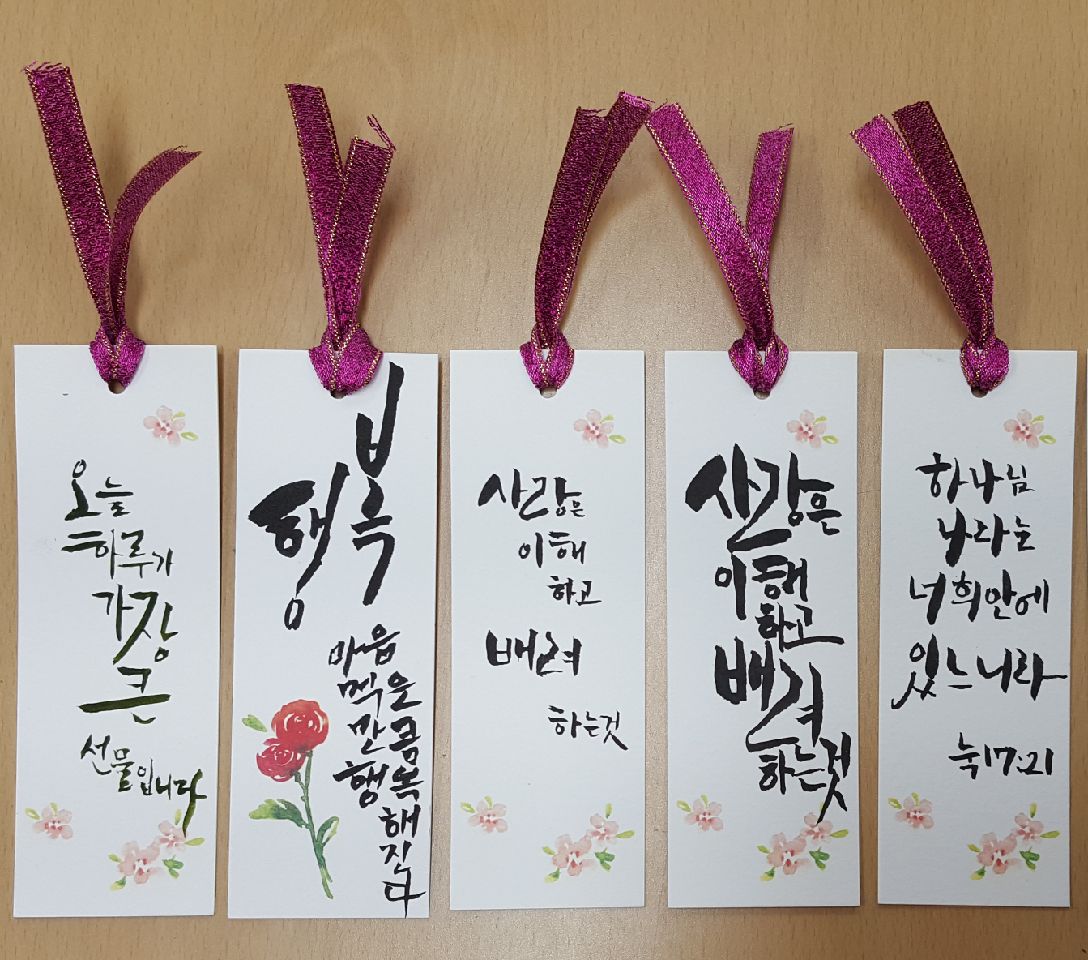 오늘
하루가
가장
큰
선물입니다
행복
마음
먹은
만큼
행복
해
진
다
사랑은
이해
하고
배려
하는것
사랑은
이해
하고
배려
하는것
하나님
나라는
너희안에
있느니라
눅17:21